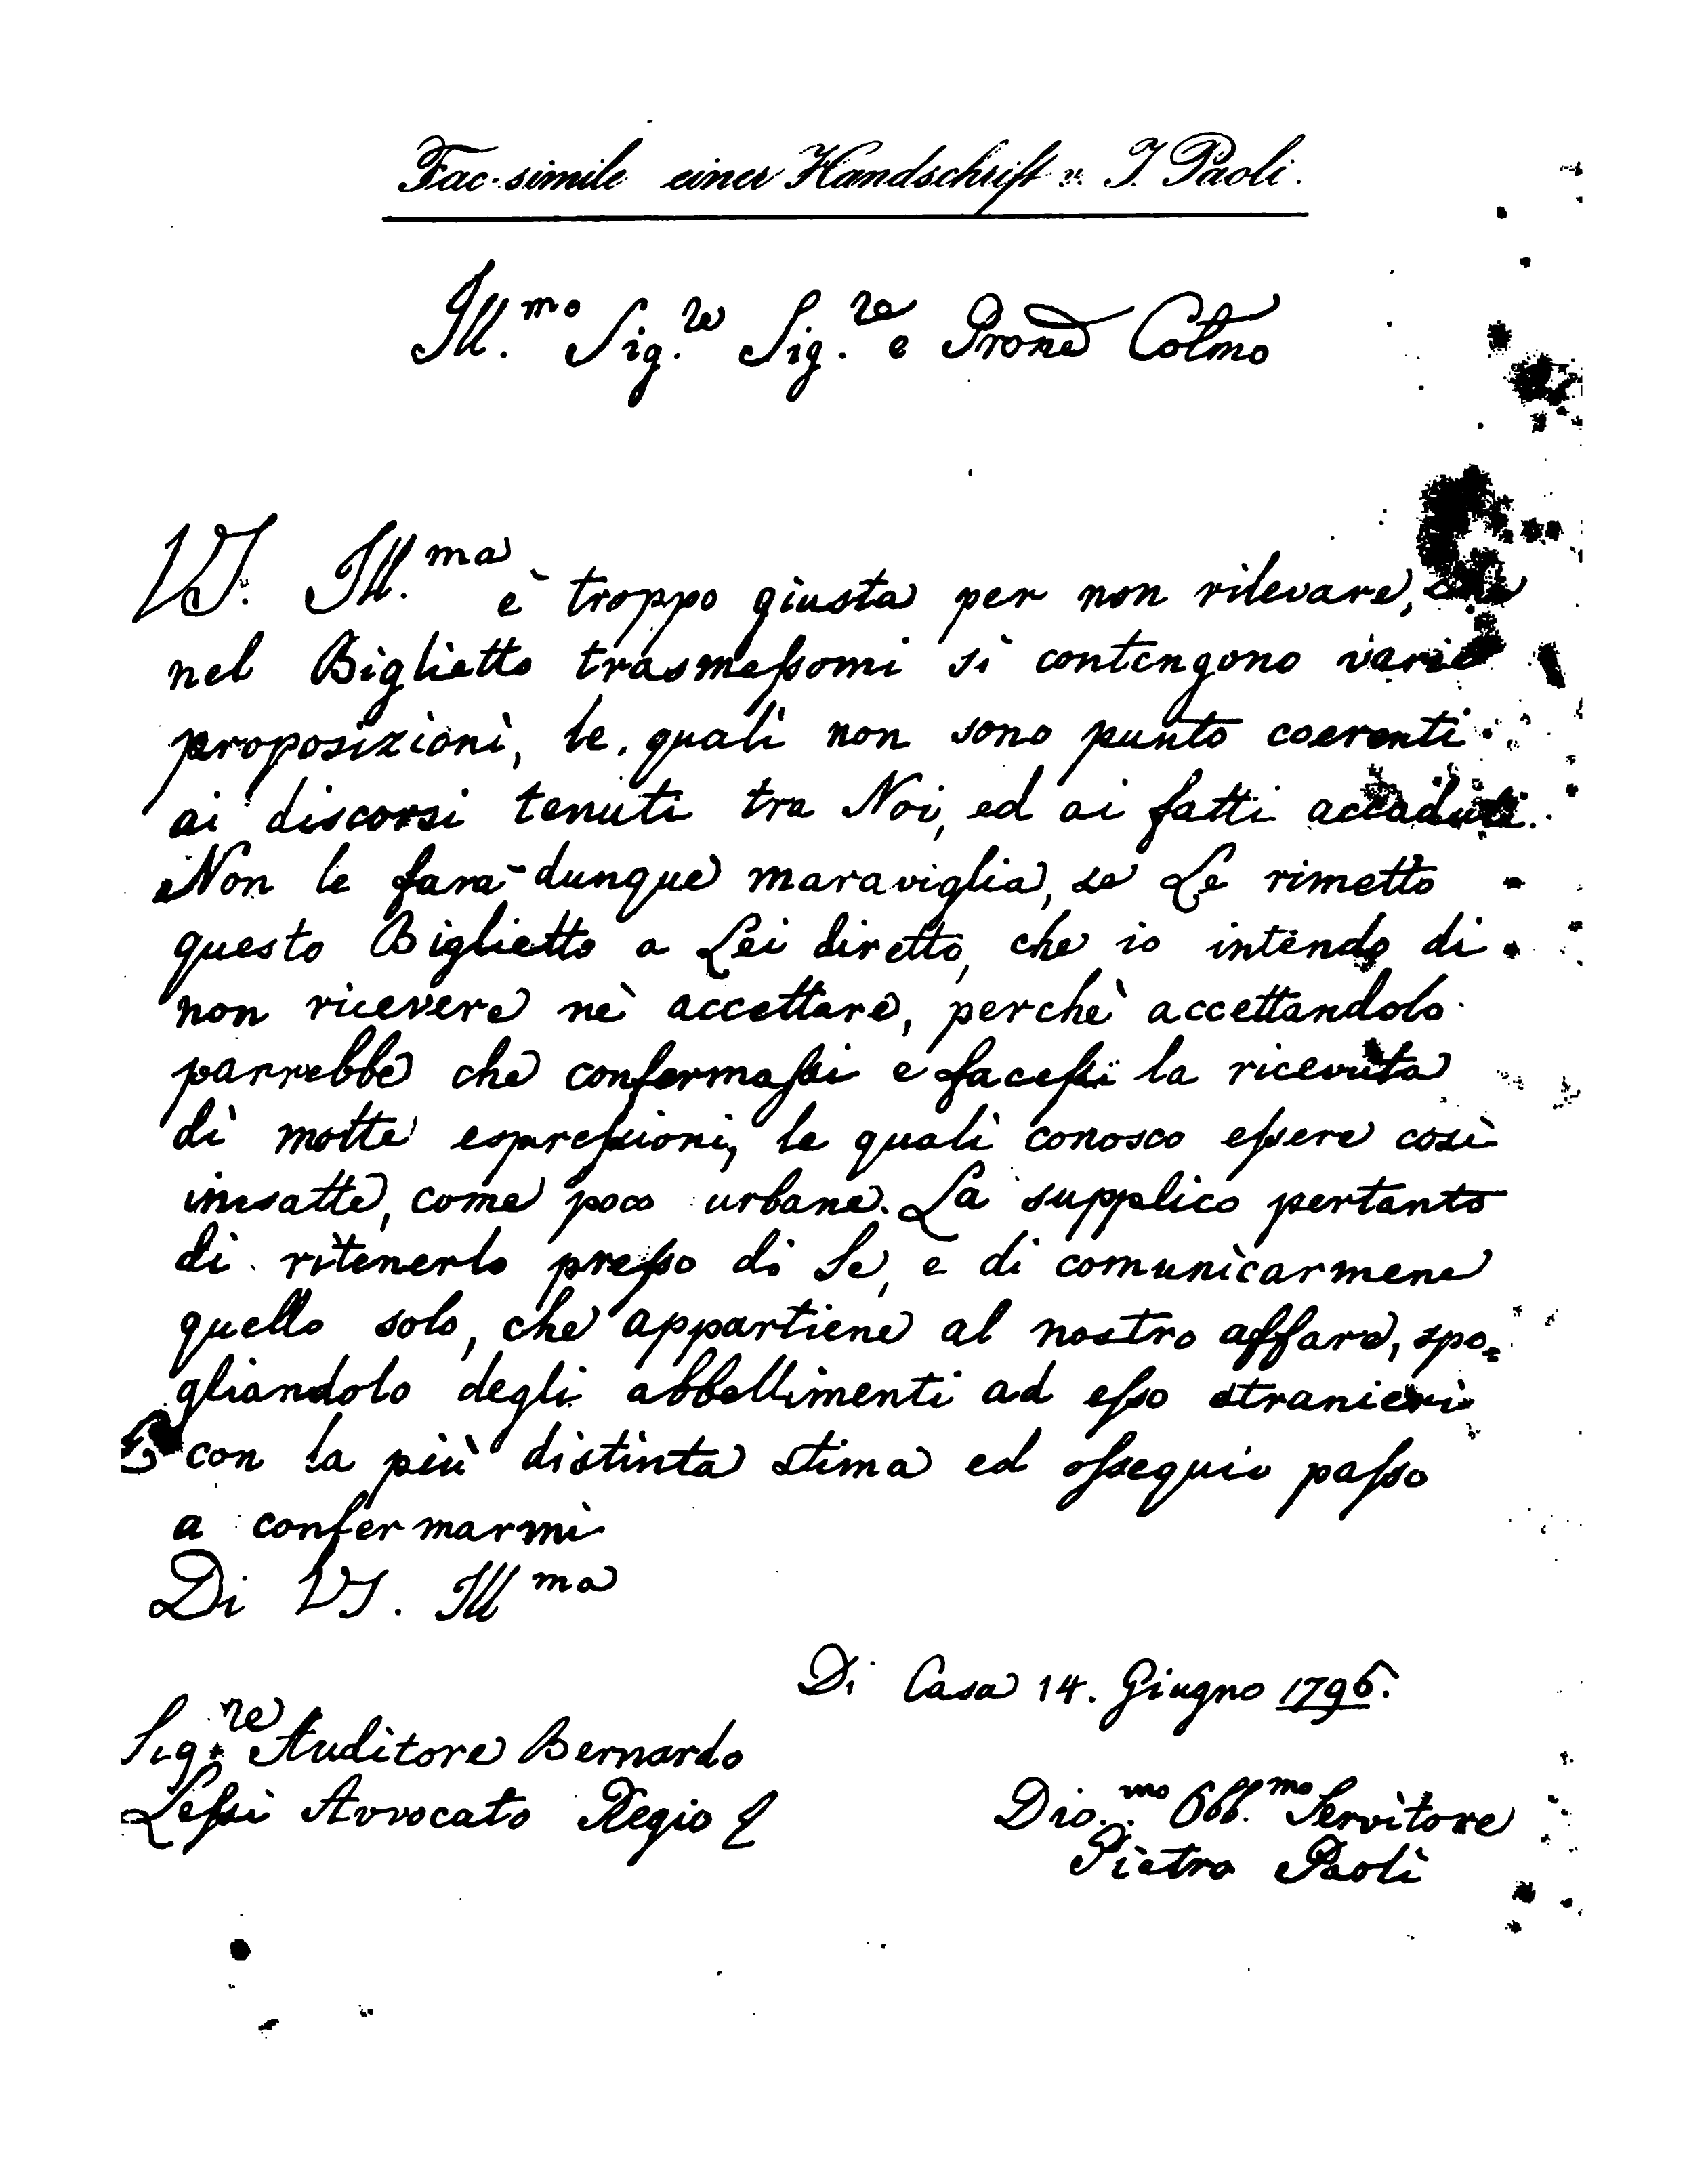 Fac-simile einer Handschrift v. J. Paoli.
Ill.mo Sig.re Sig.re e Prone Colmo
VS. Ill.ma è troppo giusta per non rilevare, che
nel Biglietto trasmeſsomi si contengono varie
proposizioni, le quali non sono punto coerenti
ai discorsi tenuti tra Noi, ed ai fatti accaduti.
Non le farà dunque maraviglia, se Le rimetto
questo Biglietto a Lei diretto, che io intendo di
non ricevere nè accettare, perchè accettandolo
parrebbe che confermaſsi e faceſsi la ricevuta
di molte espreſsioni, le quali conosco eſsere così
inesatte, come poco urbane. La supplico pertanto
di ritenerlo preſso di Se, e di comunicarmene
quello solo, che appartiene al nostro affare, spo=
gliandolo degli abbellimenti ad eſso stranieri
E con la più distinta stima ed oſsequio paſso
a confermarmi
Di VS. Ill ma
Di Casa 14. Giugno 1796.
Sig.re Auditore Bernardo
Leſsi Avvocato Regio
Dio.mo Obb.mo Servitore
Pietro Paoli